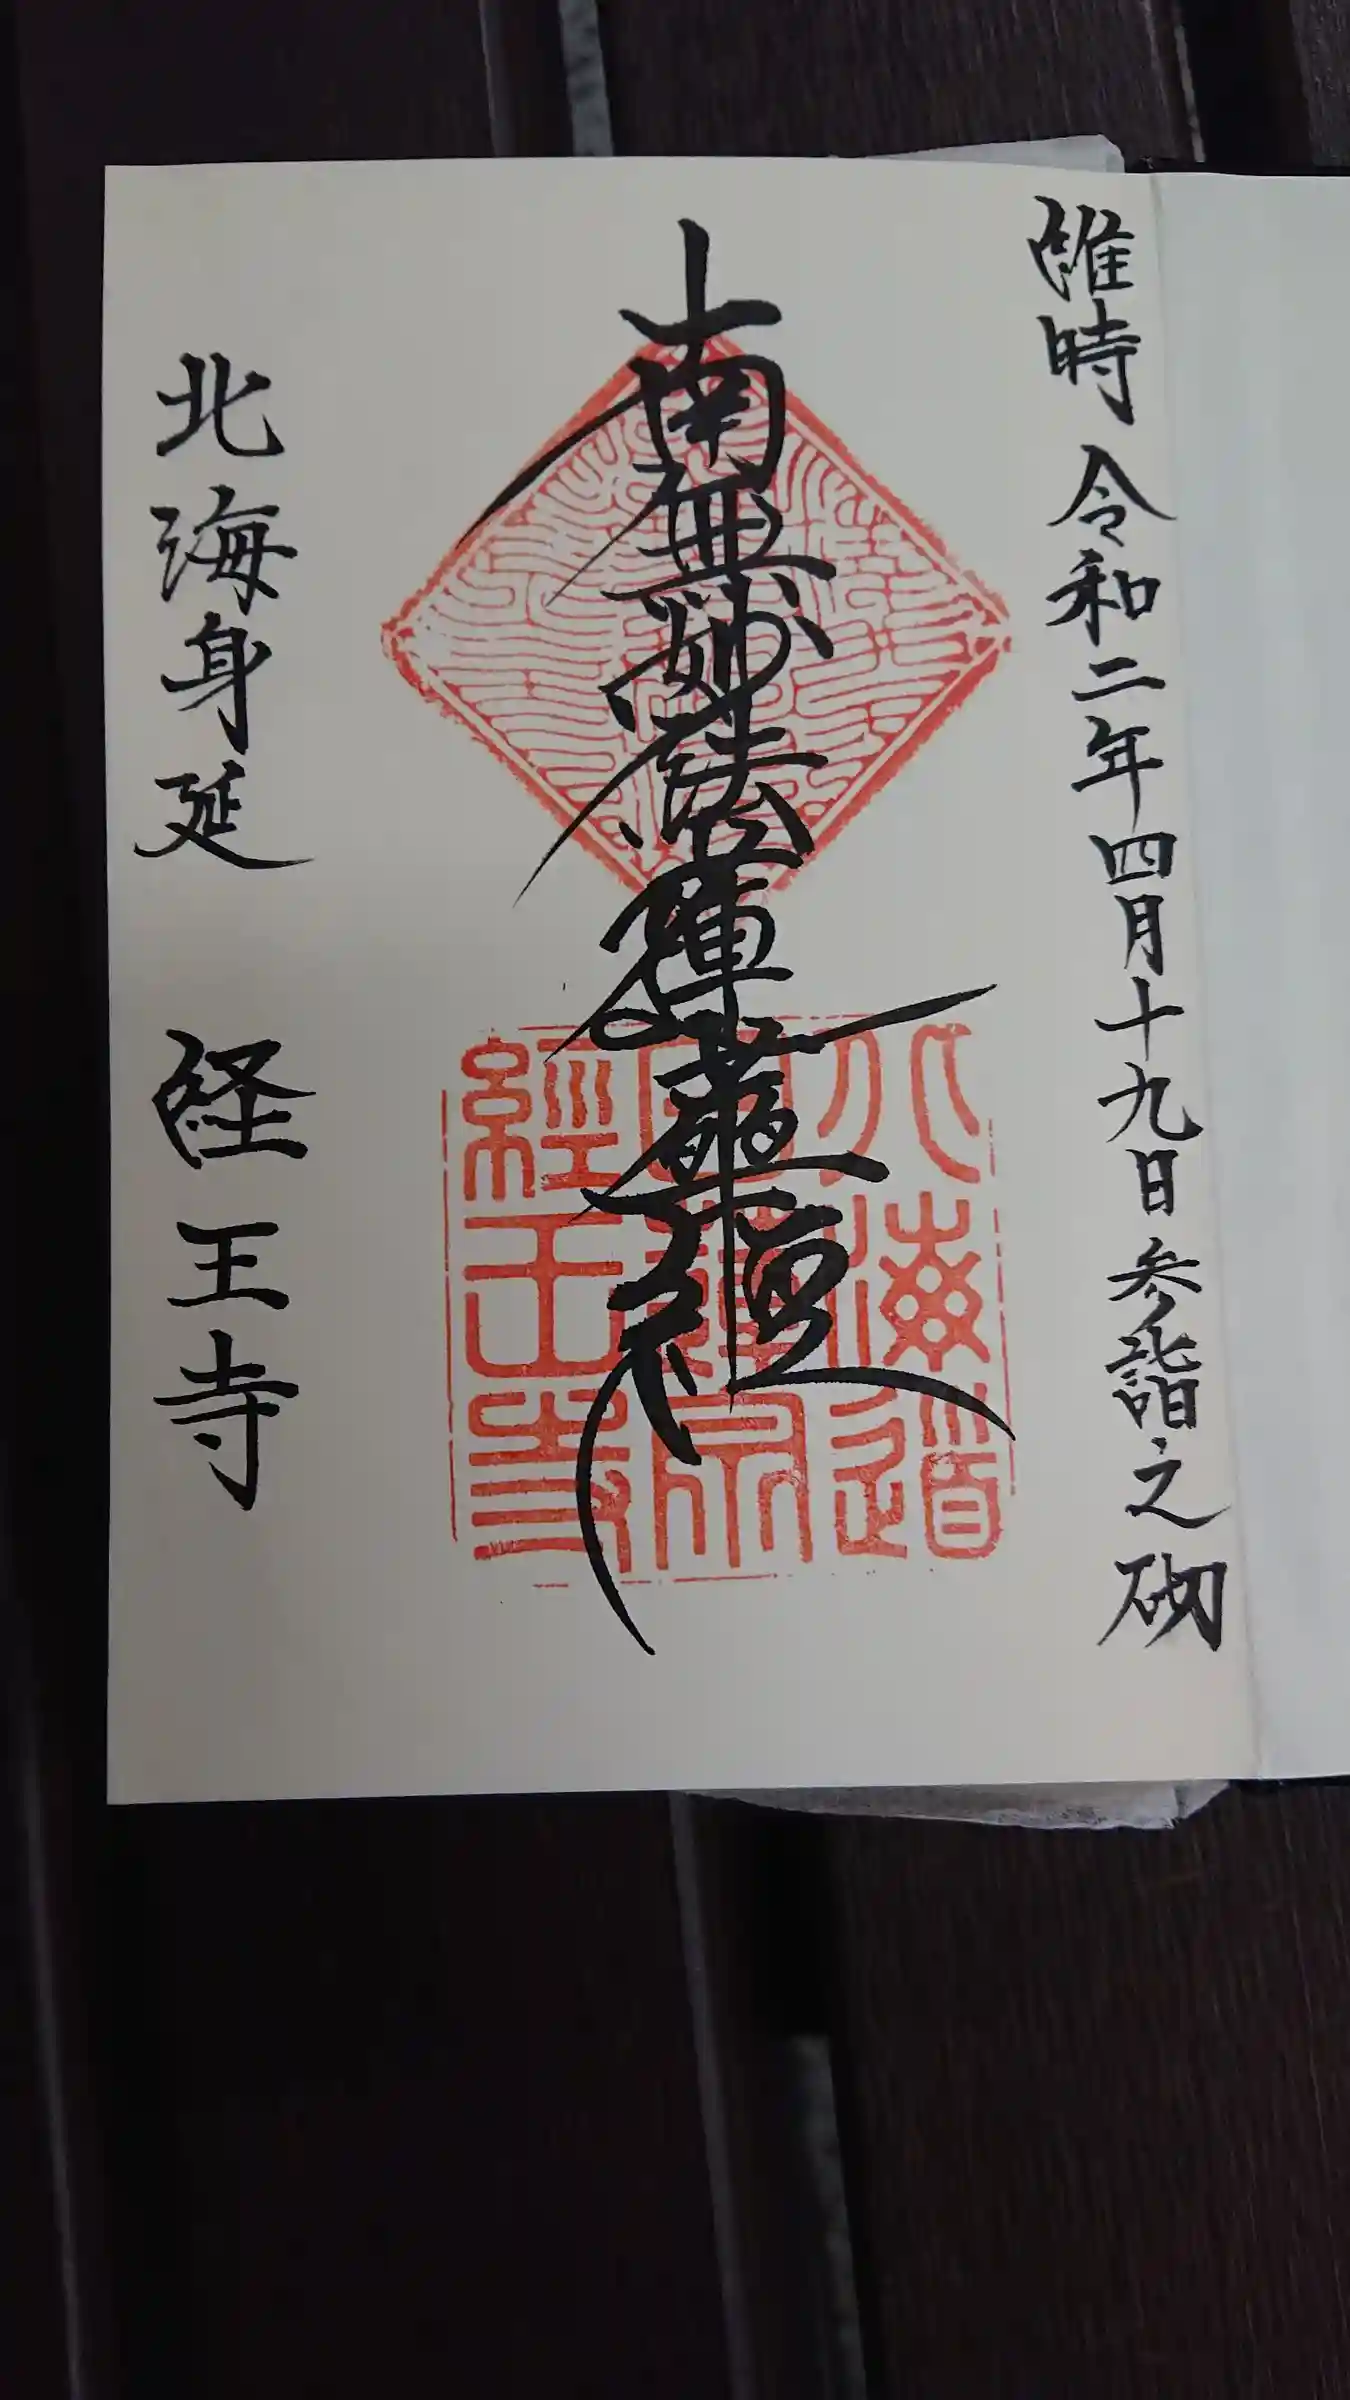 維時 令和二年四月十九日 参詣之砌
南無妙法蓮華経
北海道
日蓮宗
經王寺
北海身延 経王寺